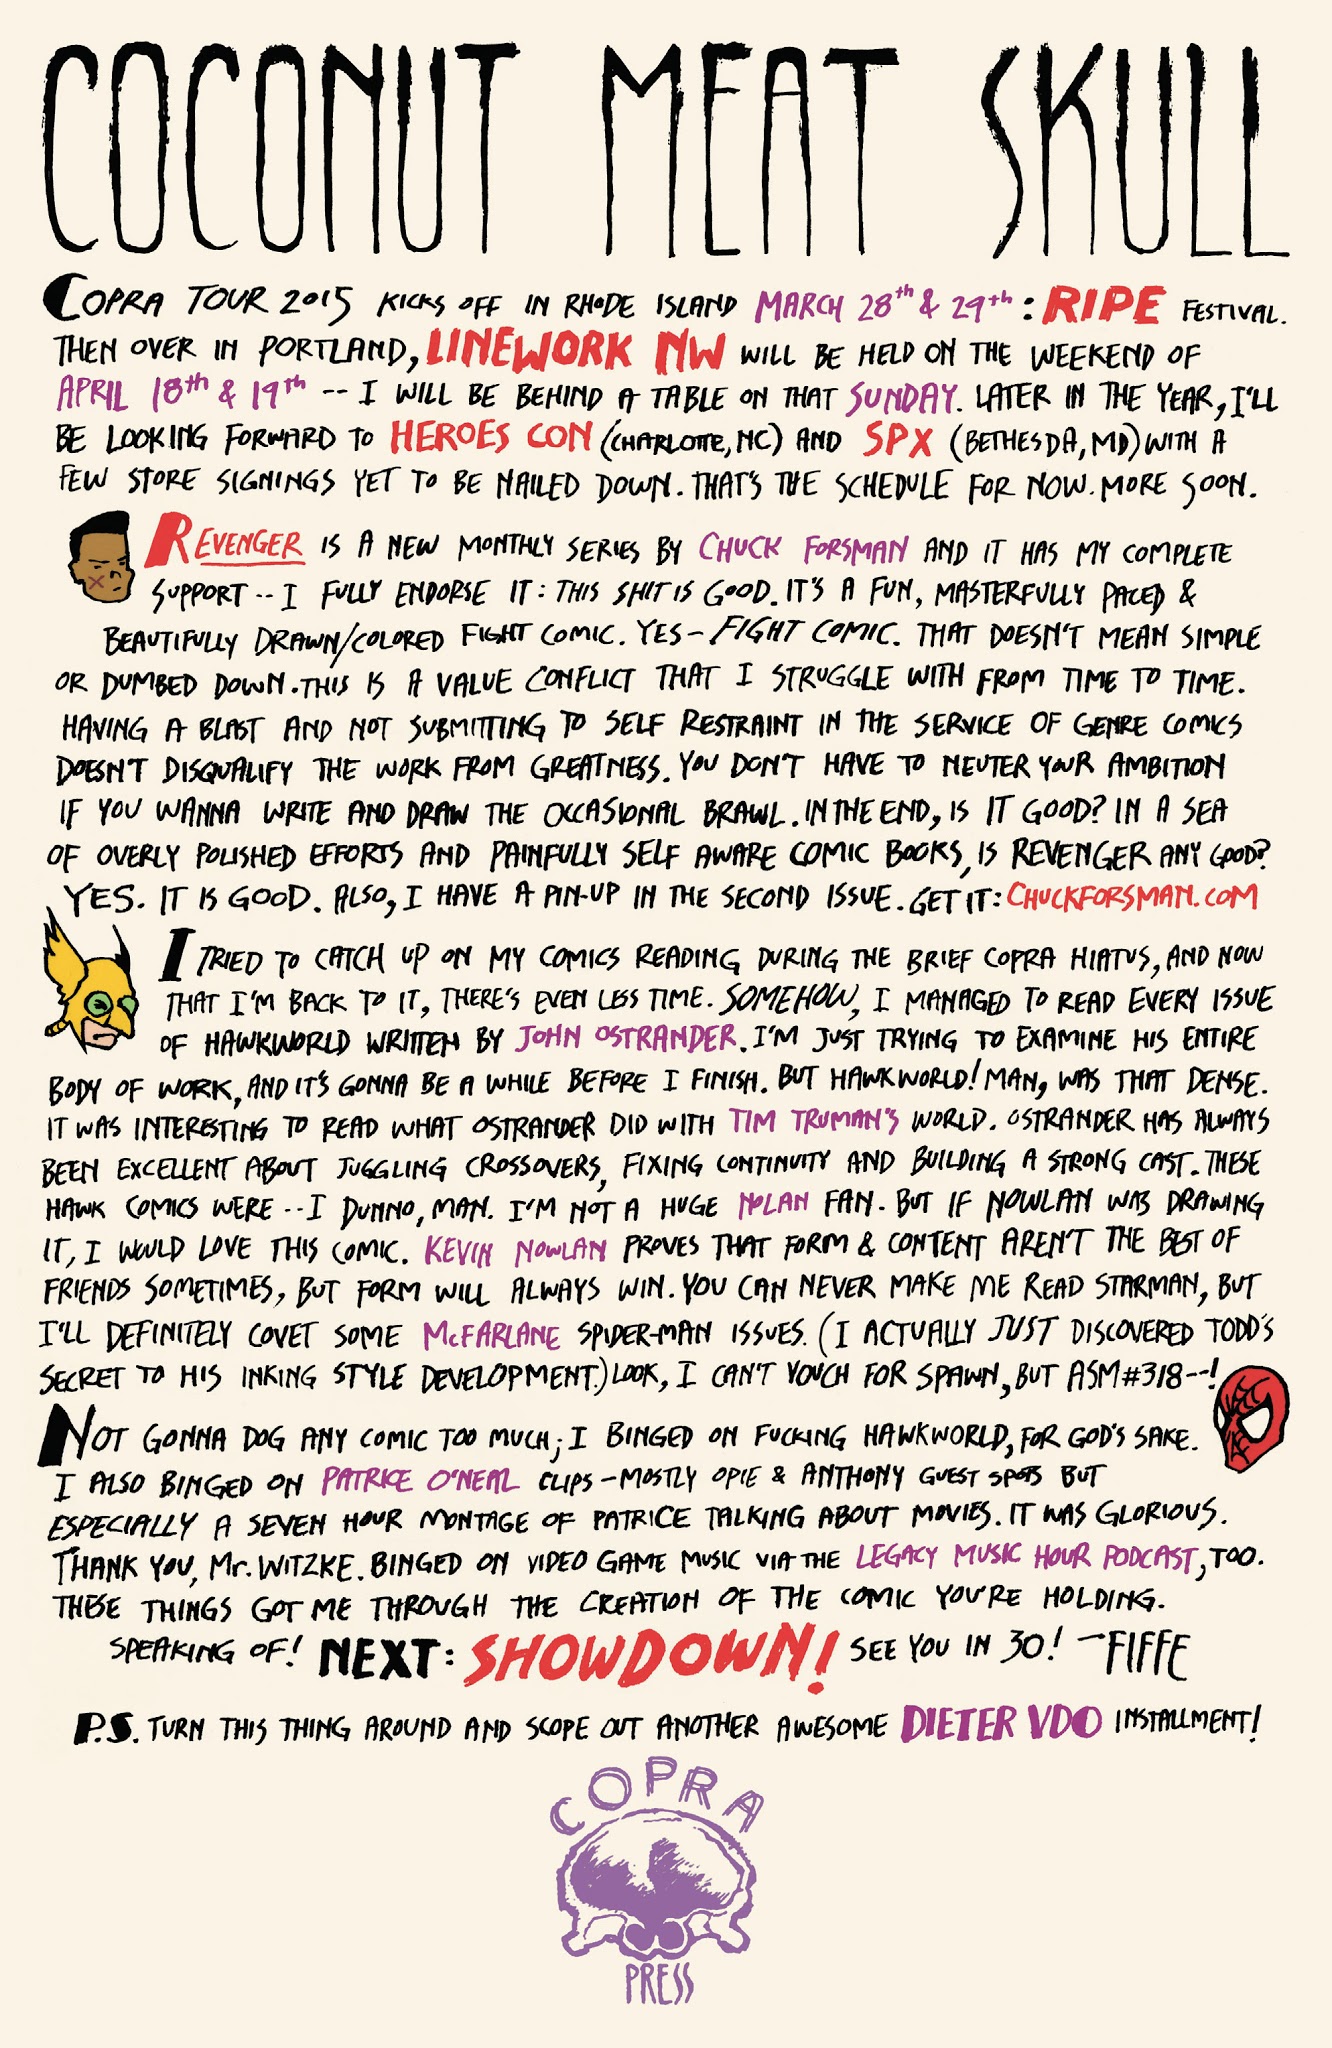 COCONUT MEAT SKULL
COPRA TOUR 2015 KICKS OFF IN RHODE ISLAND MARCH 28th & 29th: RIPE FESTIVAL.
THEN OVER IN PORTLAND, LINEWORK NW WILL BE HELD ON THE WEEKEND OF
APRIL 18th & 19th -- I WILL BE BEHIND A TABLE ON THAT SUNDAY. LATER IN THE YEAR, I'LL
BE LOOKING FORWARD TO HEROES CON (CHARLOTTE, NC) AND SPX (BETHESDA, MD) WITH A
FEW STORE SIGNINGS YET TO BE NAILED DOWN. THAT'S THE SCHEDULE FOR NOW. MORE SOON.
REVENGER IS A NEW MONTHLY SERIES BY CHUCK FORSMAN AND IT HAS MY COMPLETE
SUPPORT -- I FULLY ENDORSE IT: THIS SHIT IS GOOD. IT'S A FUN, MASTERFULLY PACED &
BEAUTIFULLY DRAWN/COLORED FIGHT COMIC. YES - FIGHT COMIC. THAT DOESN'T MEAN SIMPLE
OR DUMBED DOWN. THIS IS A VALUE CONFLICT THAT I STRUGGLE WITH FROM TIME TO TIME.
HAVING A BLAST AND NOT SUBMITTING TO SELF RESTRAINT IN THE SERVICE OF GENRE COMICS
DOESN'T DISQUALIFY THE WORK FROM GREATNESS. YOU DON'T HAVE TO NEUTER YOUR AMBITION
IF YOU WANNA WRITE AND DRAW THE OCCASIONAL BRAWL. IN THE END, IS IT GOOD? IN A SEA
OF OVERLY POLISHED EFFORTS AND PAINFULLY SELF AWARE COMIC BOOKS, IS REVENGER ANY GOOD?
YES. IT IS GOOD. ALSO, I HAVE A PIN-UP IN THE SECOND ISSUE. GET IT: CHUCKFORSMAN.COM
I TRIED TO CATCH UP ON MY COMICS READING DURING THE BRIEF COPRA HIATUS, AND NOW
THAT I'M BACK TO IT, THERE'S EVEN LESS TIME. SOMEHOW, I MANAGED TO READ EVERY ISSUE
OF HAWKWORLD WRITTEN BY JOHN OSTRANDER. I'M JUST TRYING TO EXAMINE HIS ENTIRE
BODY OF WORK, AND IT'S GONNA BE A WHILE BEFORE I FINISH. BUT HAWKWORLD! MAN, WAS THAT DENSE.
IT WAS INTERESTING TO READ WHAT OSTRANDER DID WITH TIM TRUMAN'S WORLD. OSTRANDER HAS ALWAYS
BEEN EXCELLENT ABOUT JUGGLING CROSSOVERS, FIXING CONTINUITY AND BUILDING A STRONG CAST. THESE
HAWK COMICS WERE -- I DUNNO, MAN. I'M NOT A HUGE NOLAN FAN. BUT IF NOWLAN WAS DRAWING
IT, I WOULD LOVE THIS COMIC. KEVIN NOWLAN PROVES THAT FORM & CONTENT AREN'T THE BEST OF
FRIENDS SOMETIMES, BUT FORM WILL ALWAYS WIN. YOU CAN NEVER MAKE ME READ STARMAN, BUT
I'LL DEFINITELY COVET SOME McFARLANE SPIDER-MAN ISSUES. (I ACTUALLY JUST DISCOVERED TODD'S
SECRET TO HIS INKING STYLE DEVELOPMENT.) LOOK, I CAN'T VOUCH FOR SPAWN, BUT ASM#318--!
NOT GONNA DOG ANY COMIC TOO MUCH; I BINGED ON FUCKING HAWKWORLD, FOR GOD'S SAKE.
I ALSO BINGED ON PATRICE O'NEAL CLIPS - MOSTLY OPIE & ANTHONY GUEST SPOTS BUT
ESPECIALLY A SEVEN HOUR MONTAGE OF PATRICE TALKING ABOUT MOVIES. IT WAS GLORIOUS.
THANK YOU, Mr. WITZKE. BINGED ON VIDEO GAME MUSIC VIA THE LEGACY MUSIC HOUR PODCAST, TOO.
THESE THINGS GOT ME THROUGH THE CREATION OF THE COMIC YOU'RE HOLDING.
SPEAKING OF! NEXT: SHOWDOWN! SEE YOU IN 30! -FIFFE
P.S. TURN THIS THING AROUND AND SCOPE OUT ANOTHER AWESOME DIETER VDO INSTALLMENT!
COPRA
PRESS